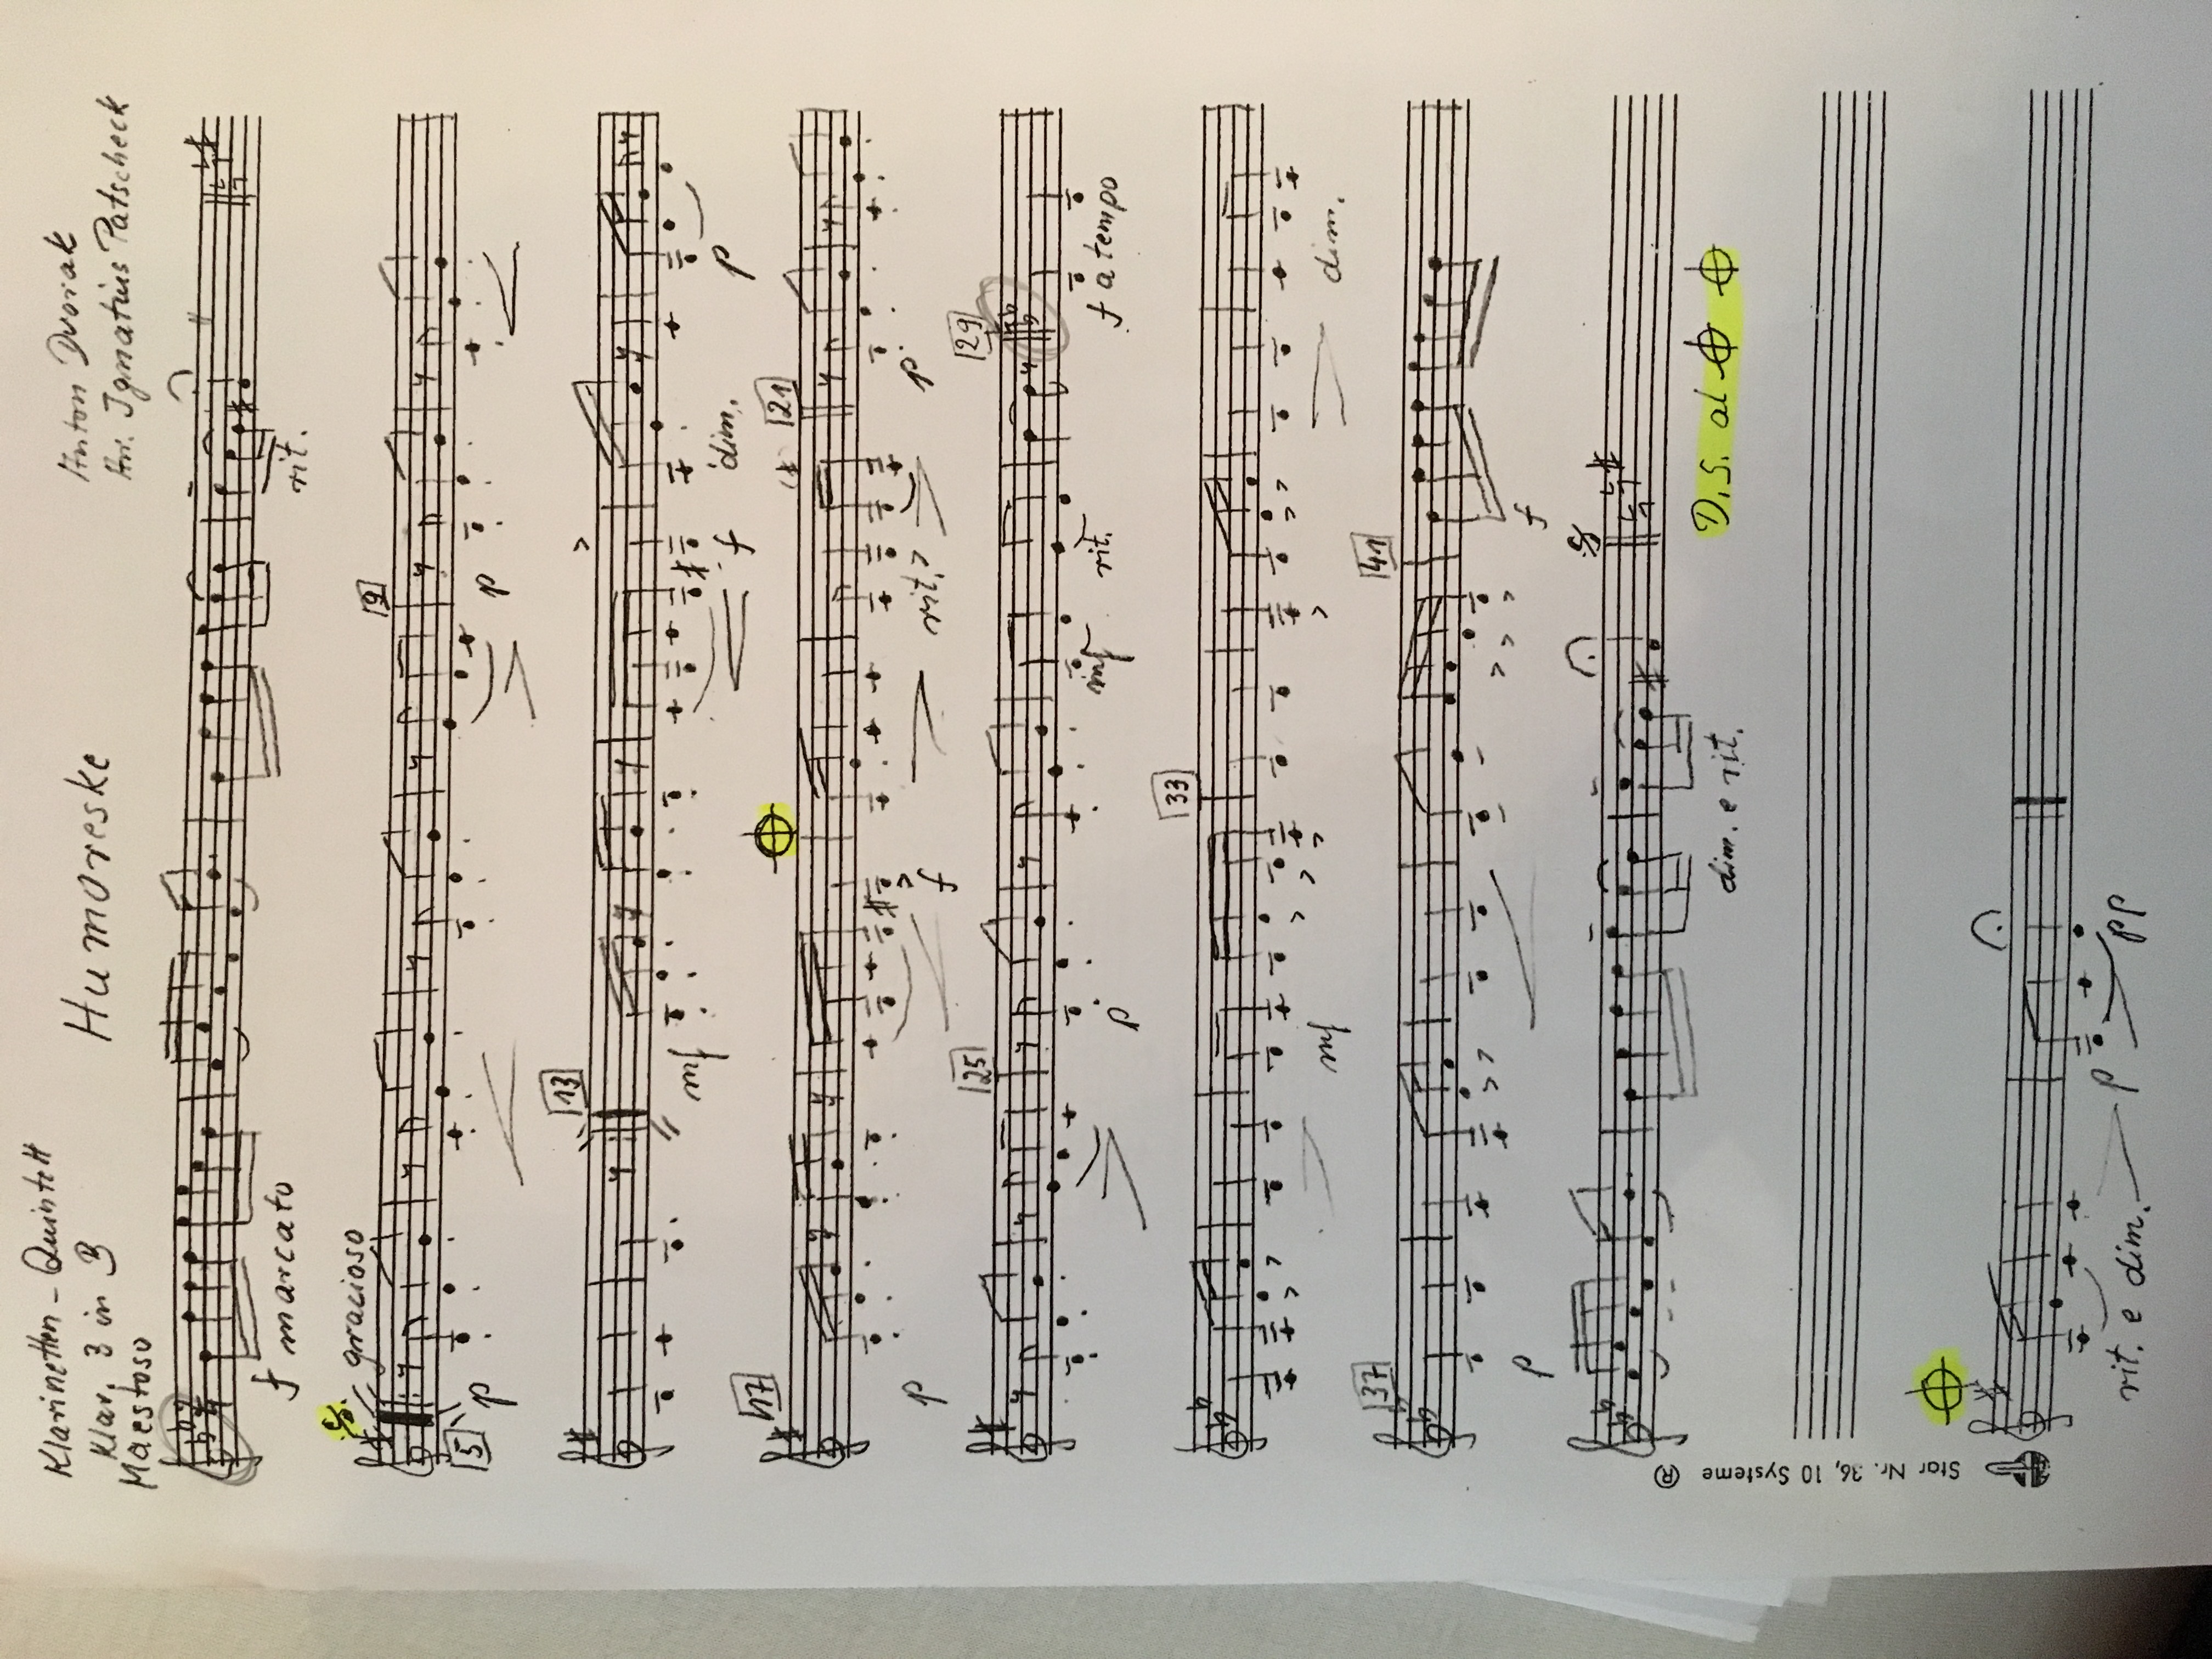 Klarinetten - Quintett
Klar. 3 in B
Maestoso
Humoreske
Anton Dvorak
Arr. Ignatius Patscheck
2/4
f marcato
rit.
gracioso
9
5
p
p
13
mf
f
dim.
p
17
21
p
f
rit.
p
25
29
p
mf
rit.
f a tempo
33
mf
dim.
37
41
p
f
dim. e rit.
D.S. al
Star Nr. 36, 10 Systeme ®
rit. e dim.
p
pp